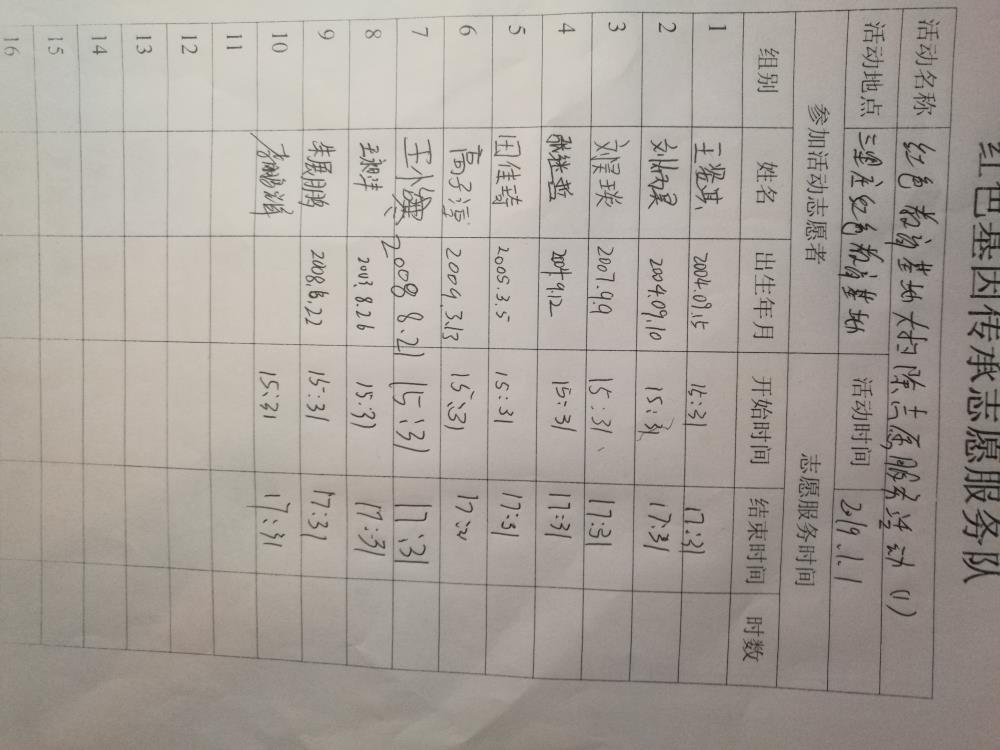 红色基因传承志愿服务队
活动名称 红色教育基地大扫除志愿服务活动(1)
活动地点 红色教育基地 活动时间 2019.1.1
参加活动志愿者 志愿服务时间
组别 姓名 出生年月 开始时间 结束时间 时数
1 2004.09.15 15:31 17:31
2 2004.09.10 15:31 17:31
3 刘昊琰 2007.9.9 15:31 17:31
4 2004.9.12 15:31 17:31
5 田佳琦 2005.3.5 15:31 17:31
6 高子淳 2009.3.13 15:31
7 2008 8.21 15:31 17:31
8 8.26 15:31 17:31
9 朱展鹏 2008.6.22 15:31 17:31
10 15:31 17:31
11
12
13
14
15
16